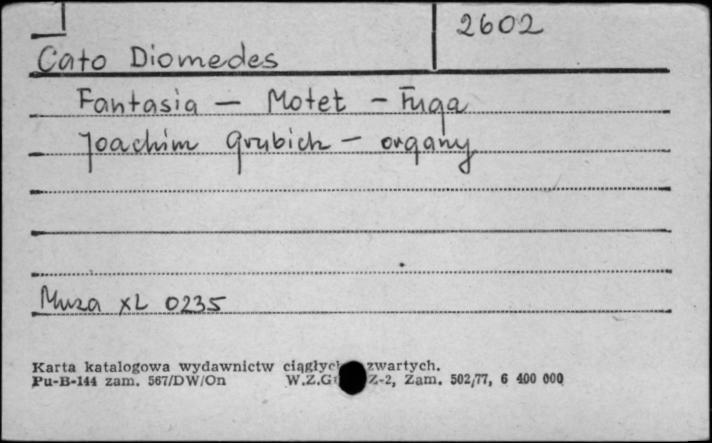 2602
Cato Diomedes
Fantasia — Motet — Fuga
Joachim Grubich — organy
Muza XL 0235
Karta katalogowa wydawnictw ciągłych zwartych.
Pu-B-144 zam. 567/DW/On W.Z.G Z-2, Zam. 502/77, 6 400 000